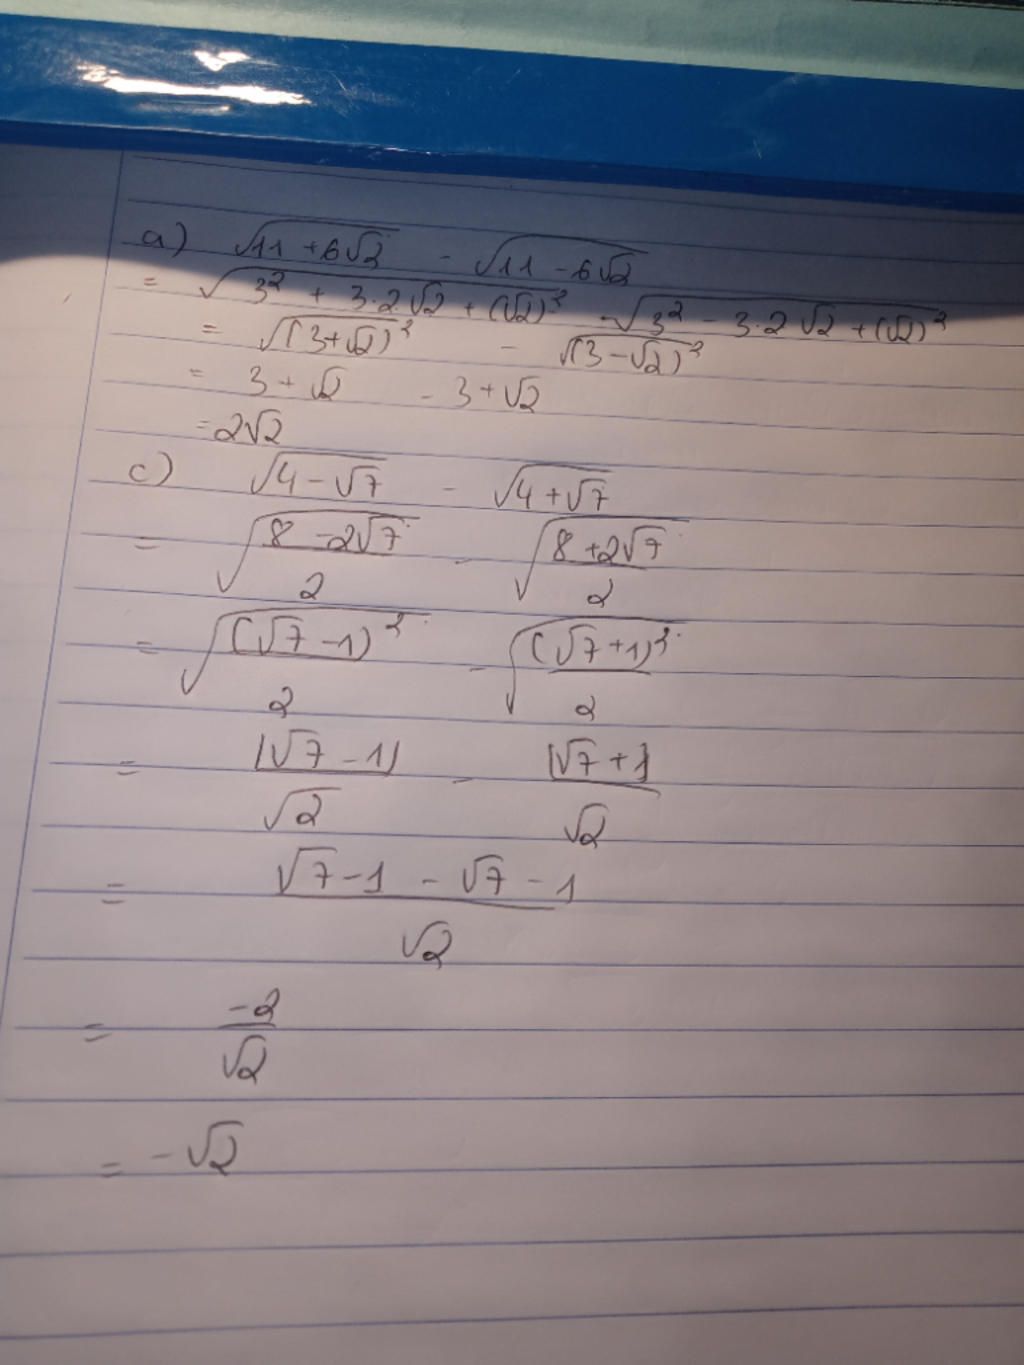 a) √(11 + 6√2) - √(11 - 6√2)
= √(3² + 3.2√2 + (√2)²) - √(3² - 3.2√2 + (√2)²)
= √((3+√2)²) - √((3-√2)²)
= 3 + √2 - 3 + √2
= 2√2
c) √(4 - √7) - √(4 + √7)
= √((8 - 2√7)/2) - √((8 + 2√7)/2)
= √((√7 - 1)²/2) - √((√7 + 1)²/2)
= |√7 - 1|/√2 - |√7 + 1|/√2
= (√7 - 1 - √7 - 1)/√2
= -2/√2
= -√2